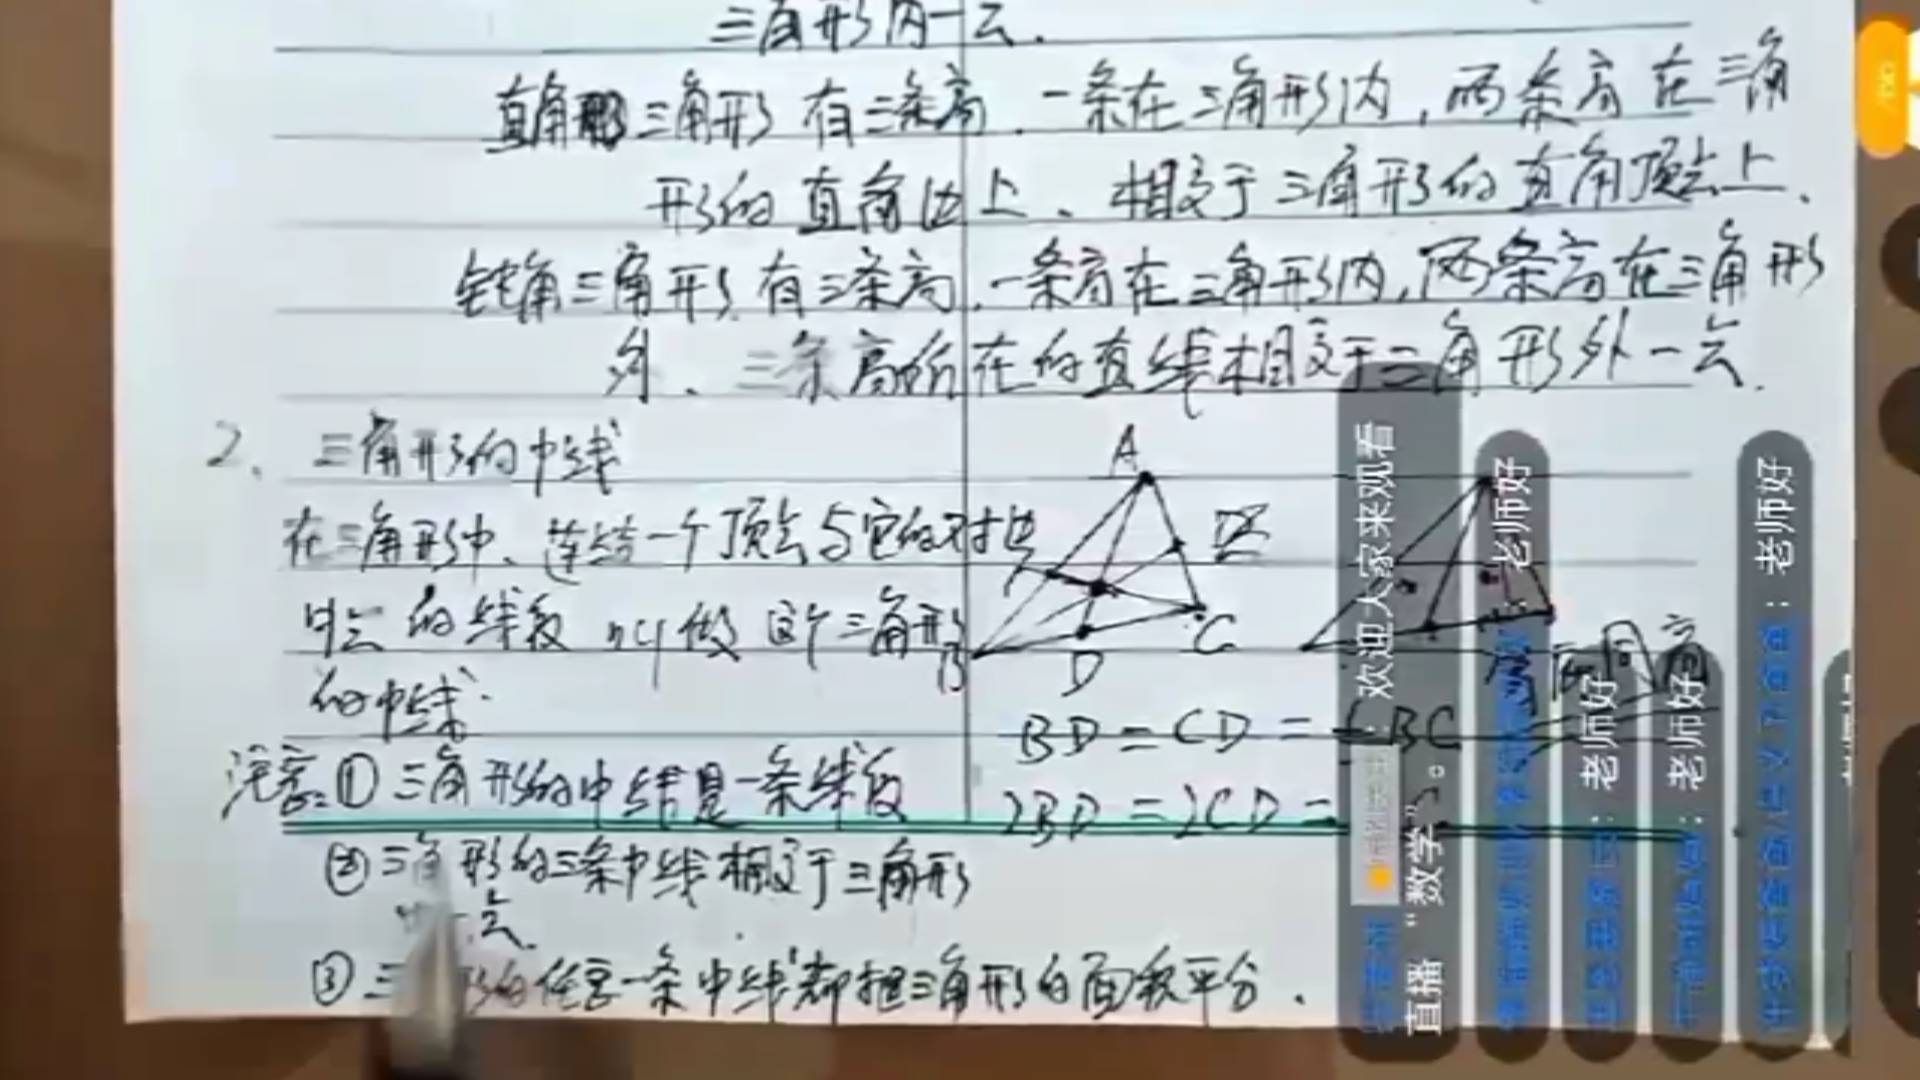 三角形内一点.
直角三角形有三条高.一条在三角形内,两条高在三角
形的直角边上、相交于三角形的直角顶点上.
钝角三角形有三条高.一条高在三角形内,两条高在三角形
外、三条高所在的直线相交于三角形外一点.
2、三角形的中线
在三角形中、连结一个顶点与它的对边
中点的线段叫做这个三角形
的中线.
注意:①三角形的中线是一条线段
②三角形的三条中线相交于三角形
一点.
③三形的任意一条中线都把三角形的面积平分.
A
B
C
D
同高
BD=CD=BC
2BD=2CD=
欢迎大家来观看
直播“数学”。
老师好
老师好
老师好
老师好